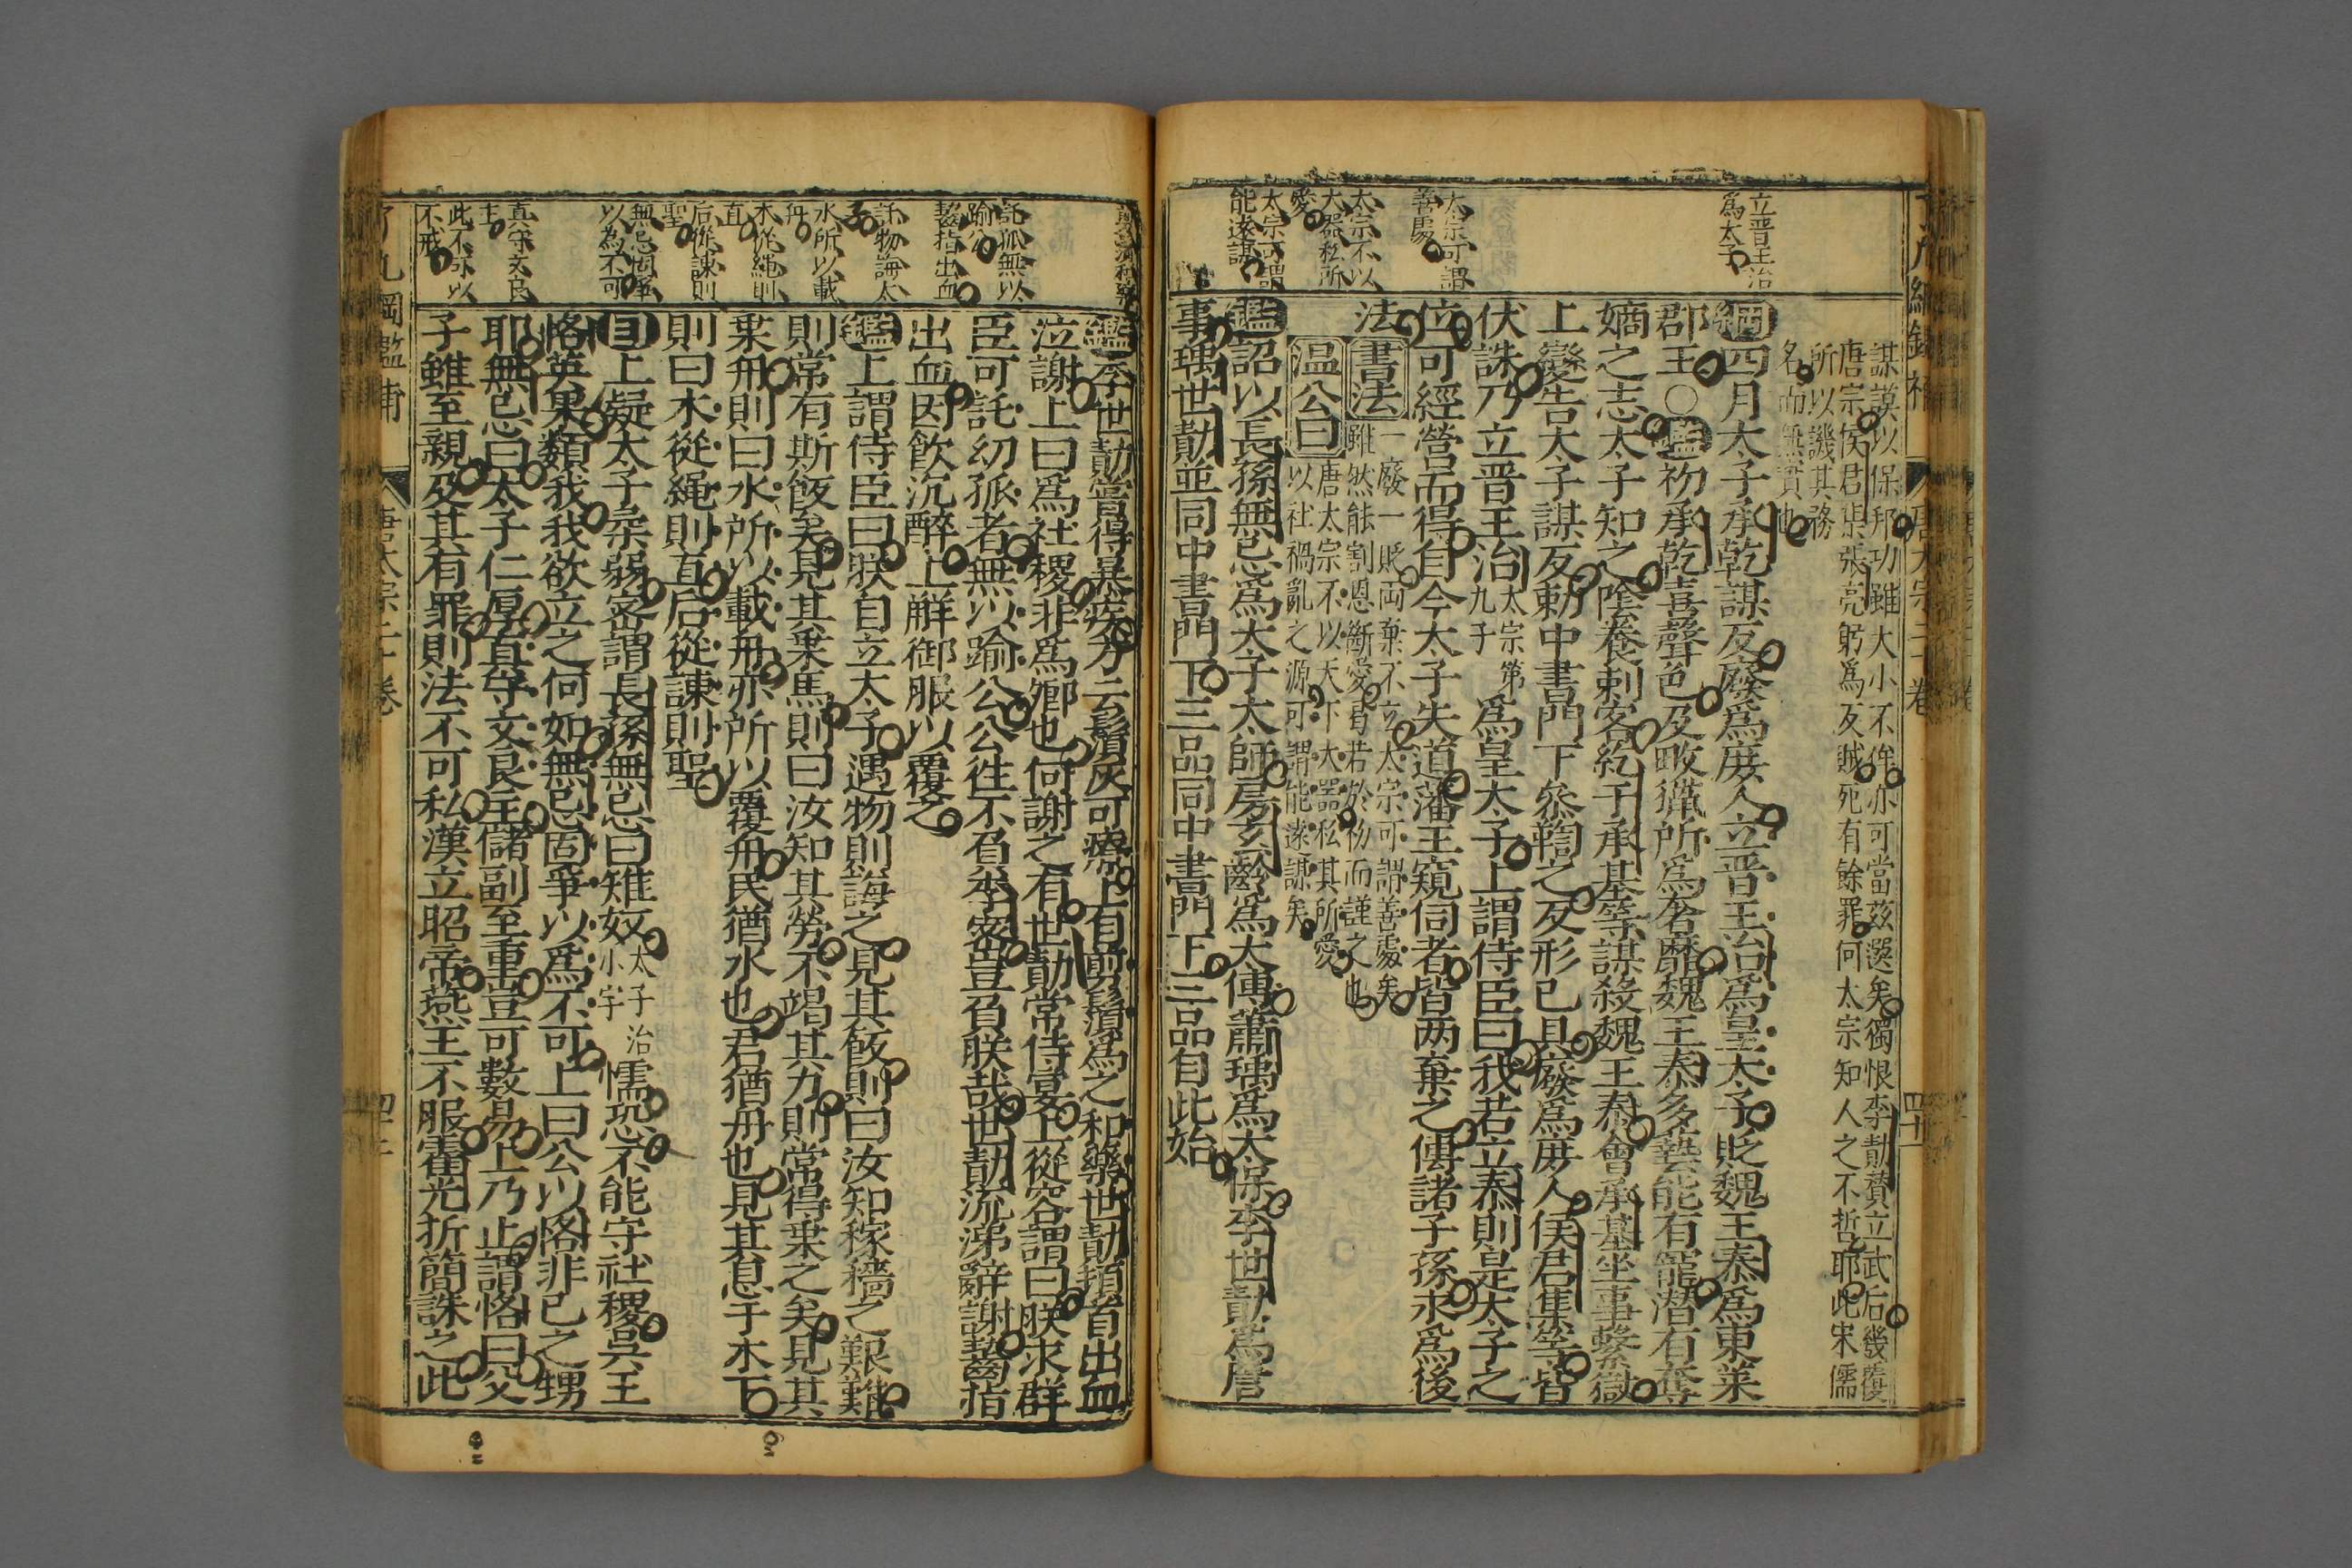 立晉王治
爲太子
太宗可謂
善處
太宗不以
大器私所
愛
太宗可謂
能遠謀
謀謨以保邦功雖大小不侔亦可當茲選矣獨恨李勣贊立武后幾覆
唐宗侯君集張亮躬爲反賊死有餘罪何太宗知人之不哲耶此宋儒
所以譏其務
名而無實也
綱四月太子承乾謀反廢爲庶人立晉王治爲皇太子貶魏王泰爲東萊
郡王○鑑初承乾喜聲色及畋獵所爲奢靡魏王泰多藝能有寵潛有奪
嫡之志太子知之陰養刺客紇干承基等謀殺魏王泰會承基坐事繫獄
上變告太子謀反勅中書門下叅鞫之反形已具廢爲庶人侯君集等皆
伏誅乃立晉王治太宗第九子爲皇太子上謂侍臣曰我若立泰則是太子之
位可經營而得自今太子失道藩王窺伺者皆两棄之傳諸子孫永爲後
法書法一廢一貶两棄不立太宗可謂善處矣
雖然能割恩斷愛胥若於初而謹之也
温公曰唐太宗不以天下大器私其所愛
以社禍亂之源可謂能遠謀矣
鑑詔以長孫無忌爲太子太師房玄齡爲太傅蕭瑀爲太保李世勣爲詹
事瑀世勣並同中書門下三品同中書門下三品自此始
唐太宗二十卷
四十一
託孤無以
踰公
齧指出血
託物誨太
子
水所以載
舟
木從繩則
直
后從諫則
聖
無忌固爭
以為不可
真守文良
主
此不可以
不戒
鑑李世勣嘗得暴疾方云鬚灰可療上自剪鬚爲之和藥世勣頓首出血
泣謝上曰爲社稷非爲卿也何謝之有世勣常侍宴上從容謂曰朕求群
臣可託幼孤者無以踰公公徃不負李密豈負朕哉世勣流涕辭謝齧指
出血因飲沉醉上解御服以覆之
鑑上謂侍臣曰朕自立太子遇物則誨之見其飯則曰汝知稼穡之艱難
則常有斯飯矣見其乗馬則曰汝知其勞不竭其力則常得乗之矣見其
乗舟則曰水所以載舟亦所以覆舟民猶水也君猶舟也見其息于木下
則曰木從繩則直后從諫則聖
目上疑太子柔弱密謂長孫無忌曰雉奴太子治小字懦恐不能守社稷吳王
恪英果類我我欲立之何如無忌固爭以爲不可上曰公以恪非己之甥
耶無忌曰太子仁厚真守文良主儲副至重豈可數易上乃止謂恪曰父
子雖至親及其有罪則法不可私漢立昭帝燕王不服霍光折簡誅之此
了凡綱鑑補
唐太宗二十卷